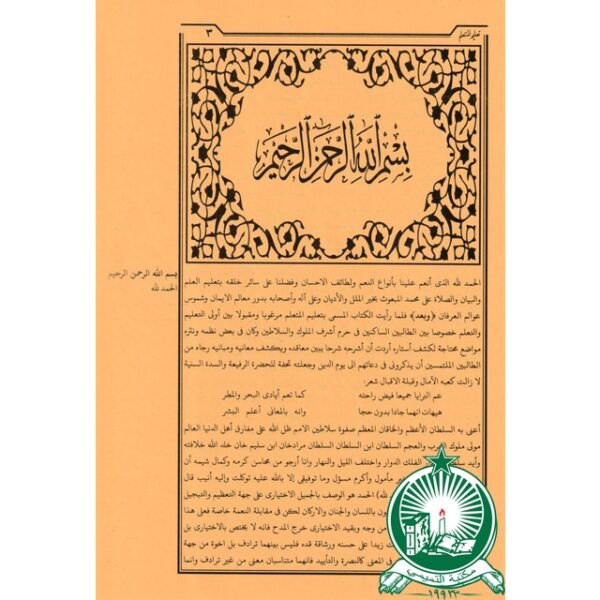 تعليم المتعلم
٣
بسم الله الرحمن الرحيم
بسم الله الرحمن الرحيم
الحمد لله
الحمد لله الذى أنعم علينا بأنواع النعم ولطائف الاحسان وفضلنا على سائر خلقه بتعليم العلم
والبيان والصلاة على محمد المبعوث بخير الملل والأديان وعلى آله وأصحابه بدور معالم الايمان وشموس
عوالم العرفان ﴿وبعد﴾ فلما رأيت الكتاب المسمى بتعليم المتعلم مرغوبا ومقبولا بين أولى التعليم
والتعلم خصوصا بين الطالبين الساكنين فى حرم أشرف الملوك والسلاطين وكان فى بعض نظمه ونثره
مواضع محتاجة لكشف أستاره أردت أن أشرحه شرحا يبين معاقده ويكشف معانيه ومبانيه رجاء من
الطالبين الملتمسين أن يذكرونى فى دعائهم الى يوم الدين وجعلته تحفة للحضرة الرفيعة والسدة السنية
لا زالت كعبة الآمال وقبلة الاقبال شعر:
عم البرايا جميعا فيض راحته كما تعم أيادى البحر والمطر
هيهات انهما جادا بدون حجا وانه بالمعانى أعلم البشر
أعنى به السلطان الأعظم والخاقان المعظم صفوة سلاطين الامم ظل الله على مفارق أهل الدنيا العالم
مولى ملوك العرب والعجم السلطان ابن السلطان السلطان مرادخان ابن سليم خان خلد الله خلافته
وأيد الفلك الدوار واختلف الليل والنهار وانا أرجو من محاسن كرمه وكمال شيمه أن
مأمول وأكرم مسؤل وما توفيقى إلا بالله عليه توكلت وإليه أنيب قال
لله) الحمد هو الوصف بالجميل الاختيارى على جهة التعظيم والتبجيل
باللسان والجنان والاركان لكن فى مقابلة النعمة خاصة فعلى هذا
من وجه وبقيد الاختيارى خرج المدح فانه لا يختص بالاختيارى بل
زيدا على حسنه ورشاقة قده فليس بينهما ترادف بل اخوة من جهة
فى المعنى كالنصرة والتأييد فانهما متناسبان معنى من غير ترادف وانما
مكتبة التميمي